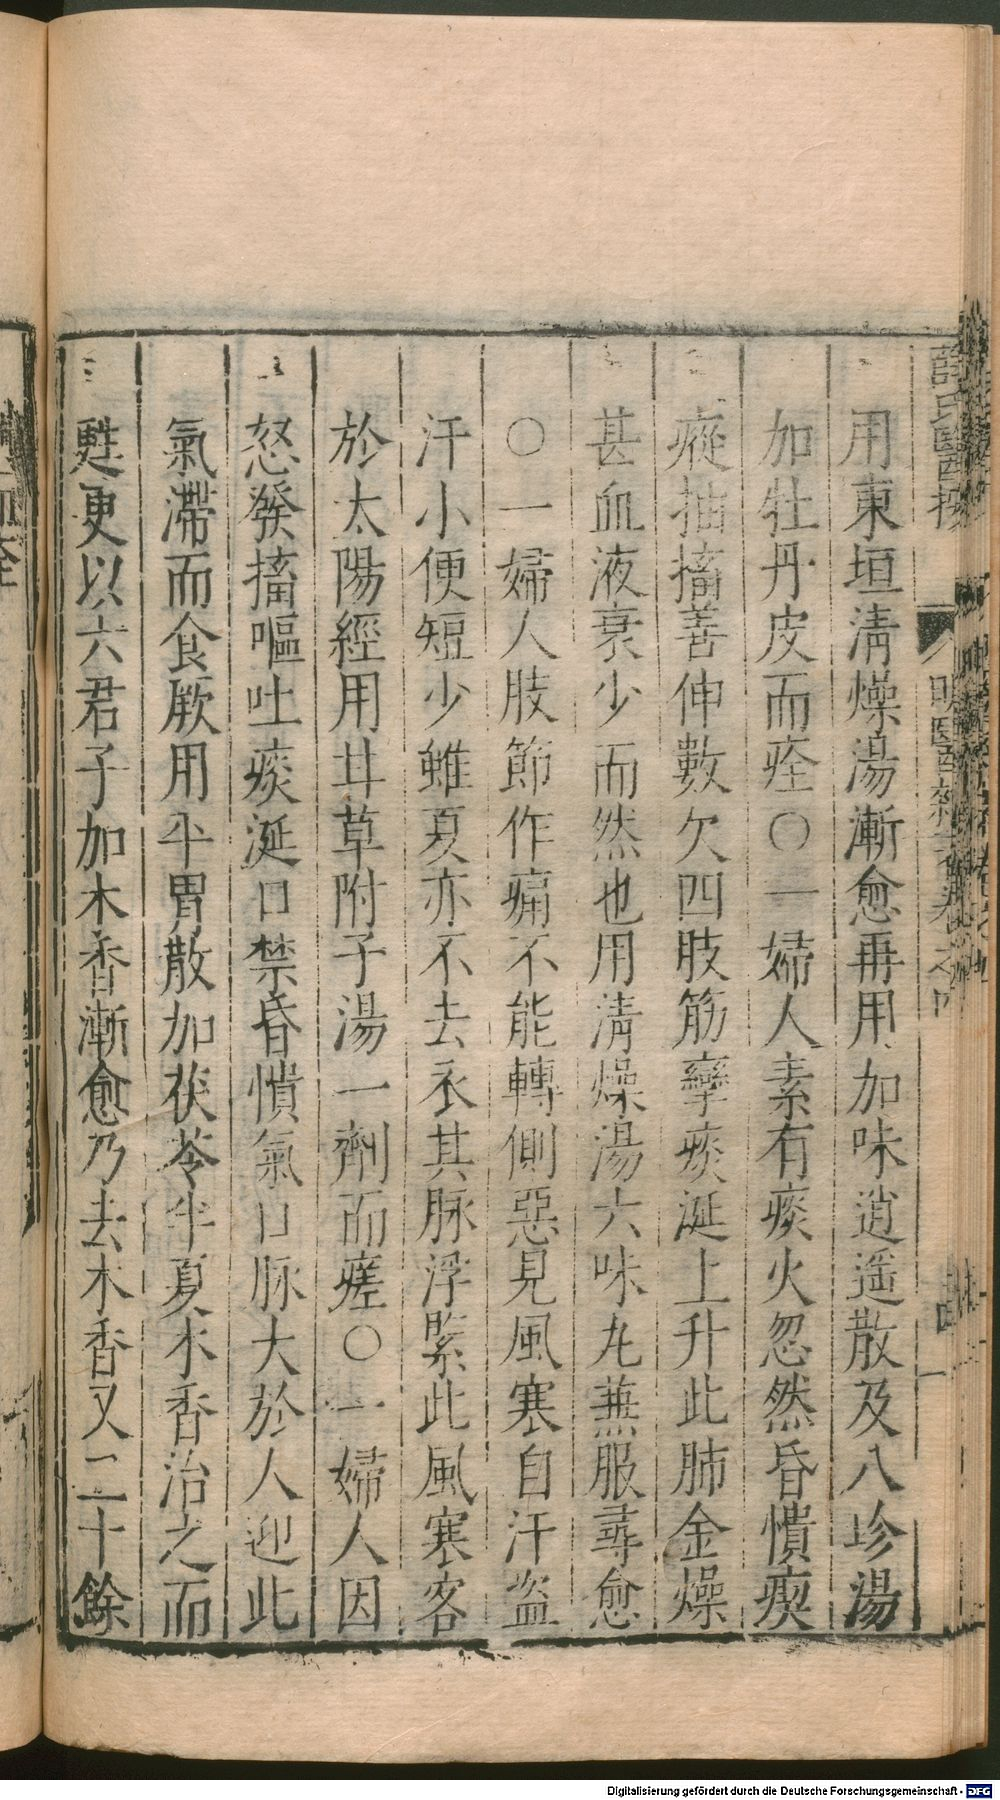 用東垣淸燥湯漸愈再用加味逍遥散及八珍湯
加牡丹皮而痊○一婦人素有痰火忽然昏憒瘈
瘲抽搐善伸數欠四肢筋攣痰涎上升此肺金燥
甚血液衰少而然也用淸燥湯六味丸兼服尋愈
○一婦人肢節作痛不能轉側惡見風寒自汗盜
汗小便短少雖夏亦不去衣其脉浮緊此風寒客
於太陽經用甘草附子湯一劑而瘥○一婦人因
怒發搐嘔吐痰涎口禁昏憒氣口脉大於人迎此
氣滯而食厥用平胃散加茯苓半夏木香治之而
甦更以六君子加木香漸愈乃去木香又二十餘
Digitalisierung gefördert durch die Deutsche Forschungsgemeinschaft - DFG